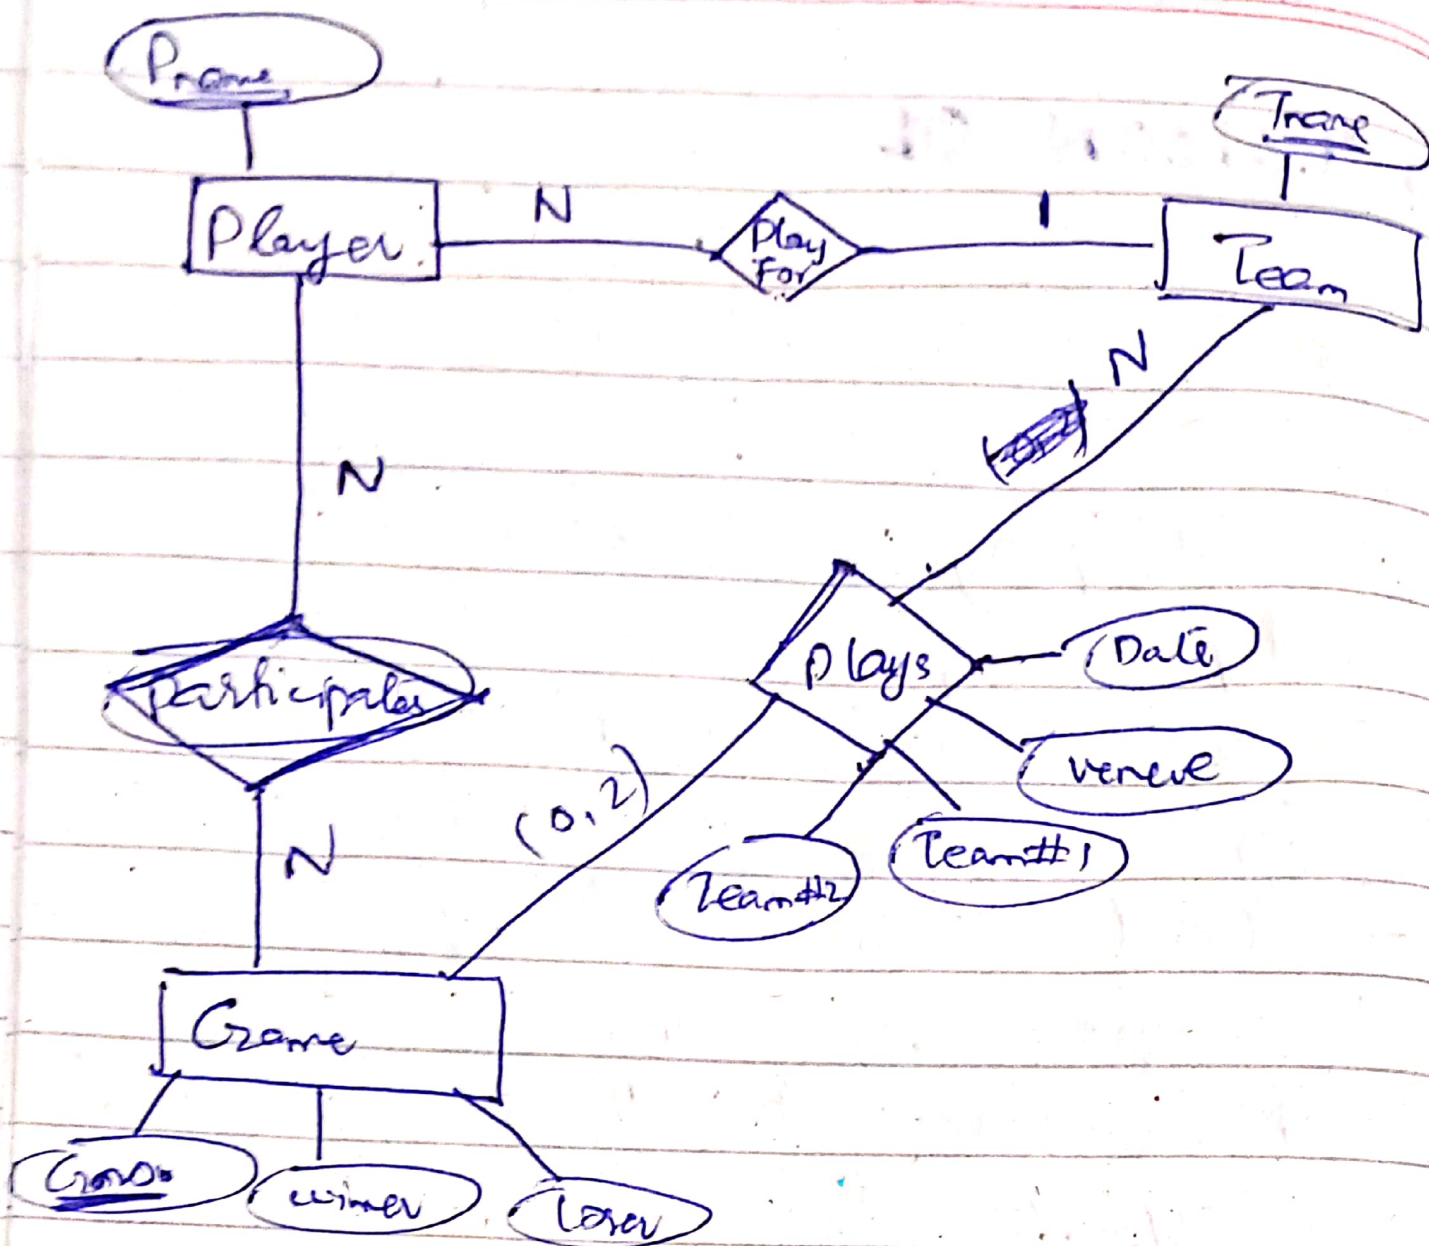 Pname
Tname
Player
N
Play
For
1
Team
N
N
participates
plays
Date
venue
(0,2)
Team#1
Team#2
N
Game
winner
Loser